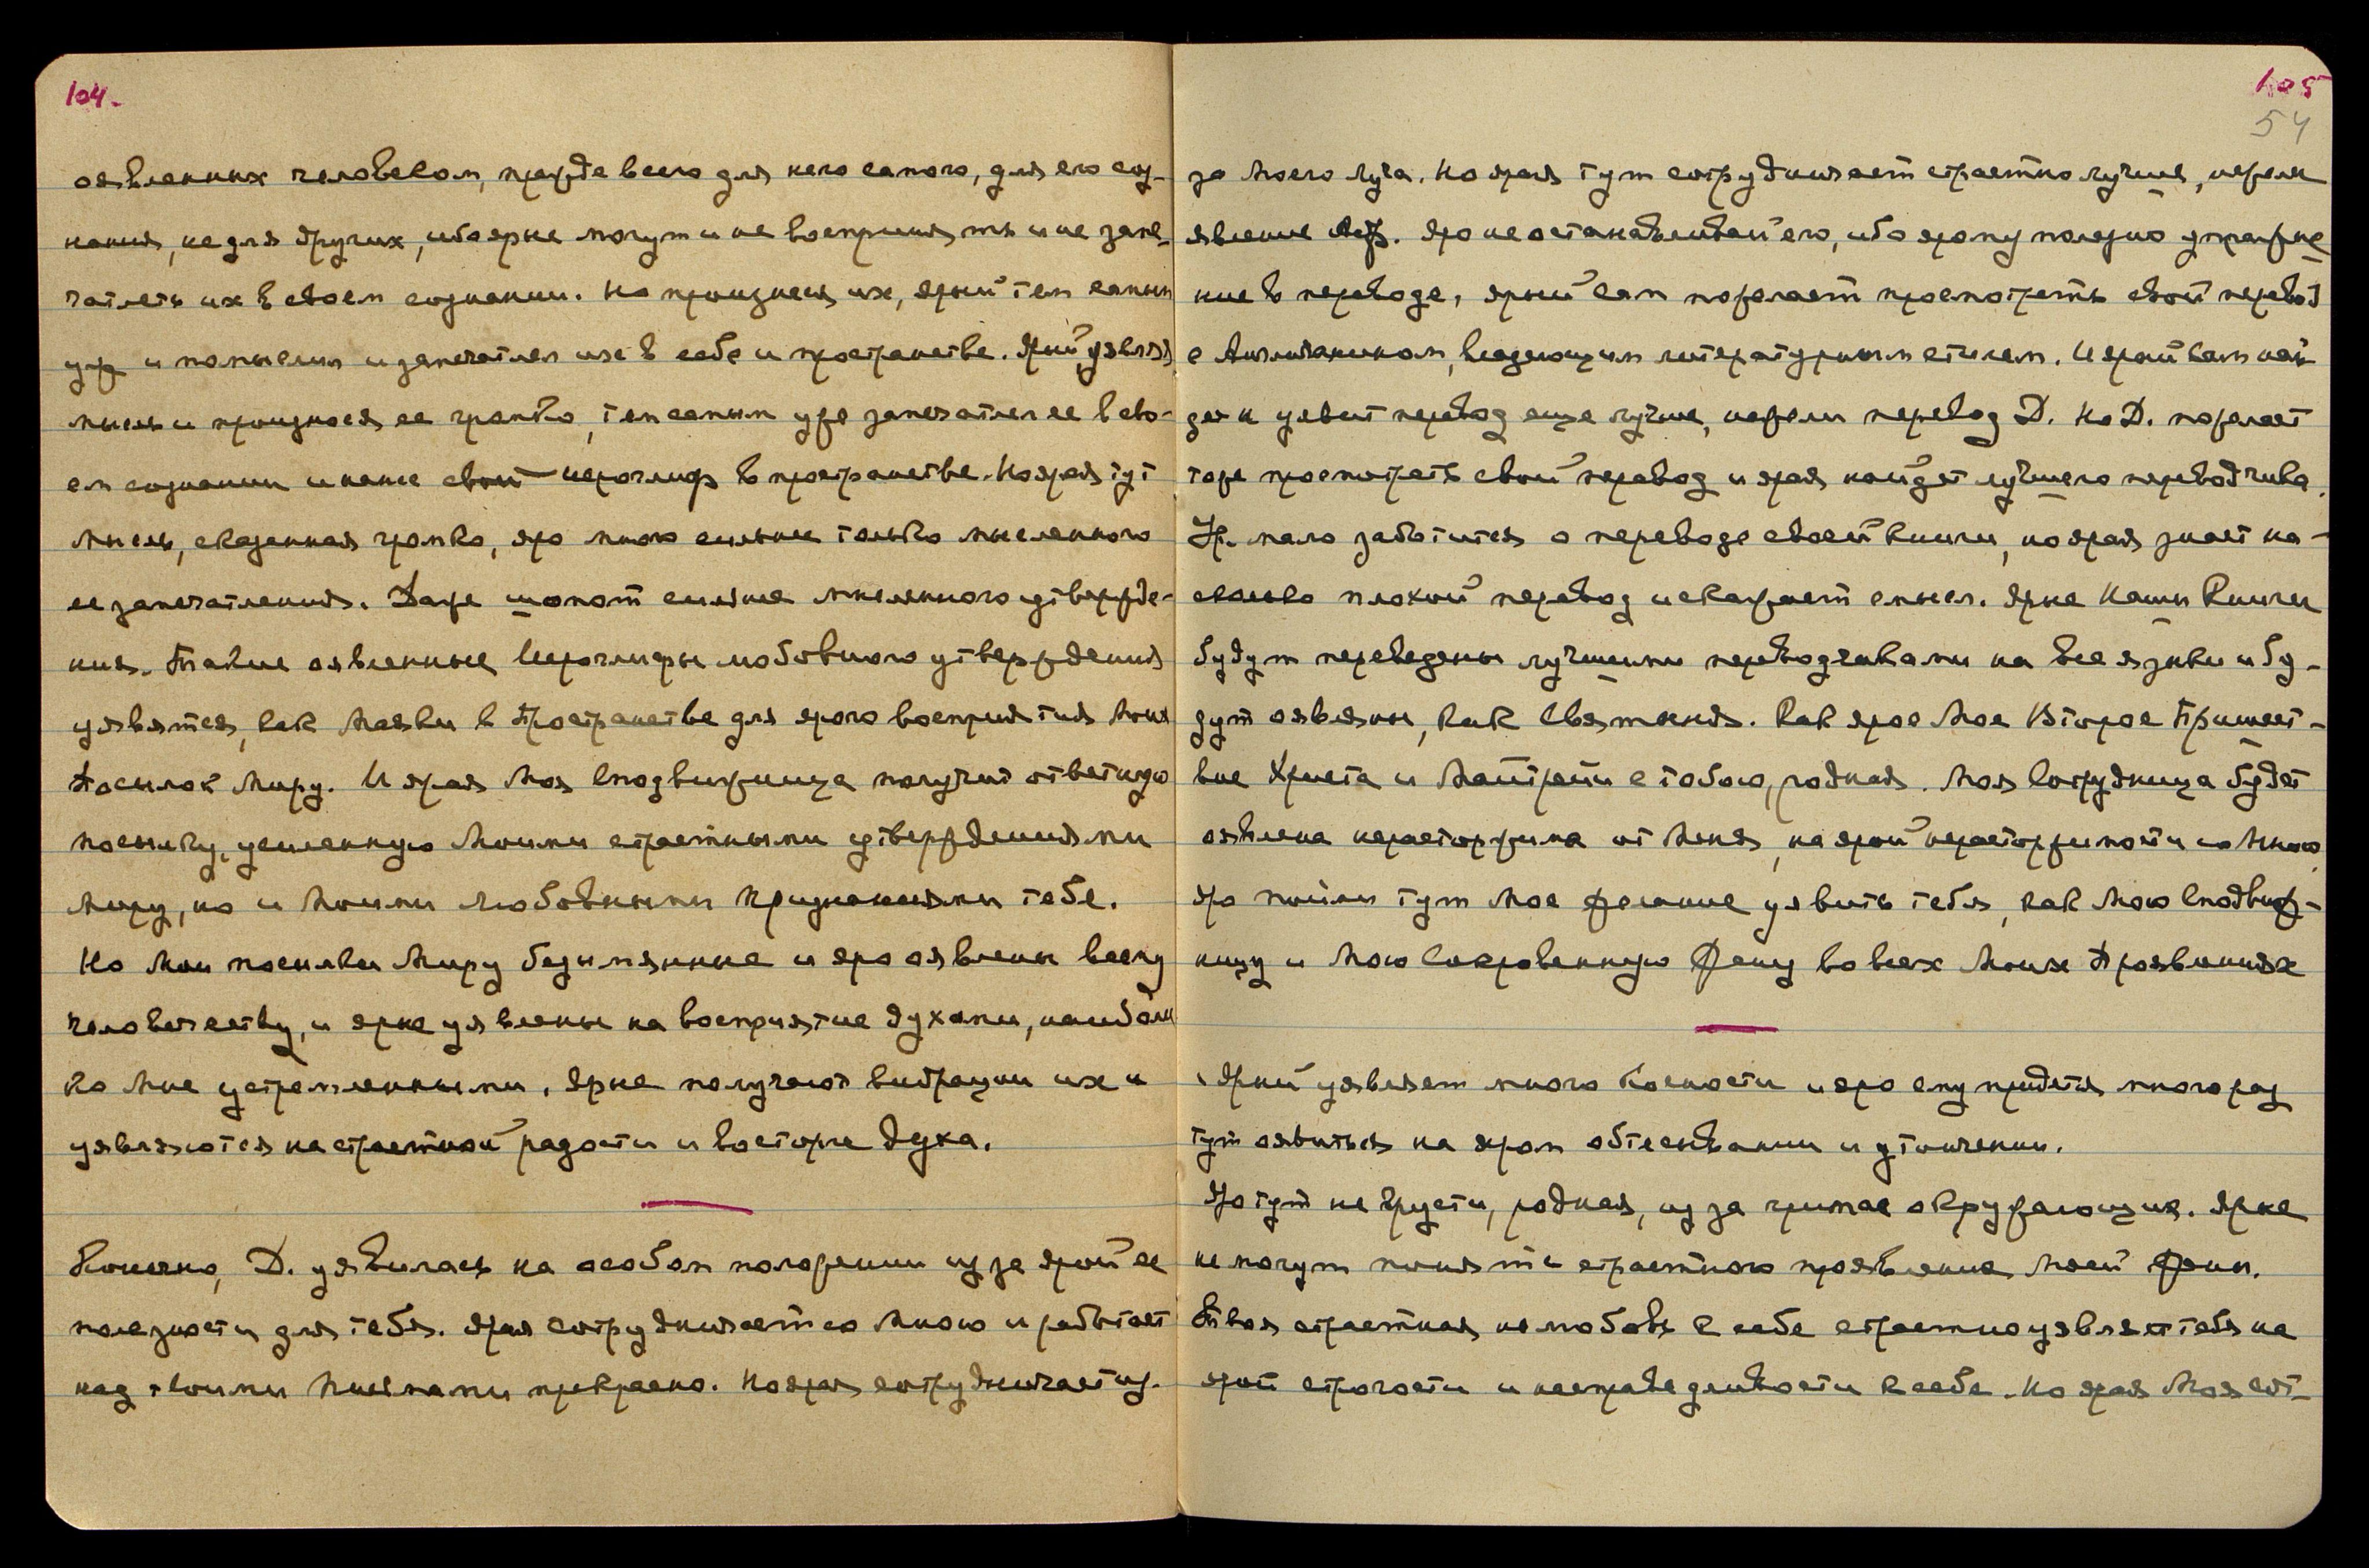 104.
оявленных человеком, прежде всего для него самого, для его соз-
нания, не для других, ибо ярые могут и не воспринять и не запе-
чатлеть их в своем сознании. Но произнеся их, ярый тем самым
уж и помыслил и запечатлел их в себе и пространстве. Ярый, уявляя
мысль и произнося ее громко, тем самым уже запечатлел ее в сво-
ем сознании и нанес свой иероглиф в пространстве. Но ярая тут
мысль, сказанная громко, яро много сильнее только мысленного
ее запечатления. Даже шопот сильнее мысленного утвержде-
ния. Такие оявленные Иероглифы любовного утверждения
уявятся, как Маяки в Пространстве для ярого восприятия Моих
Посылок Миру. И ярая Моя Сподвижница получит ответную
посылку, усиленную Моими страстными утверждениями
Миру, но и Моими любовными признаниями тебе.
Но Мои посылки Миру безымянные и яро оявлены всему
человечеству, и ярые уявлены на восприятие духами, наиболее
ко Мне устремленными. Ярые получают вибрации их и
уявляются на страстной радости и восторге духа.
Конечно, Д. уявилась на особом положении из за ярой ее
полезности для тебя. Ярая сотрудничает со Мною и работает
над твоими Письмами прекрасно. Но ярая сотрудничает из-
105
54
за Моего Луча. Но ярая тут сотрудничает страстно лучше, нежели
явление. Яро не останавливай его, ибо ярому полезно упражне-
ние в переводе. Ярый сам пожелает просмотреть свой перевод
с Англичанином, владеющим литературным стилем. И ярый сам най-
дет и уявит перевод еще лучше, нежели перевод Д. Но Д. пожелает
тоже просмотреть свой перевод и ярая найдет лучшего переводчика.
Ур. мало заботится о переводе своей книги, но ярая знает на-
сколько плохой перевод искажает смысл. Ярые Наши Книги
будут переведены лучшими переводчиками на все языки и бу-
дут оявлены, как Святыня. Как ярое Мое Второе Пришест-
вие Христа и Майтрейи с тобою, родная. Моя Сотрудница будет
оявлена нерасторжима от Меня, на ярой нерасторжимости со Мною.
Яро пойми тут Мое желание уявить тебя, как Мою Сподвиж-
ницу и Мою Сокровенную Жену во всех Моих Проявлениях
Ярый уявляет много косности и яро ему придется много раз
тут оявиться на яром обтесывании и утончении.
Яро тут не грусти, родная, из за гримас окружающих. Ярые
не могут понять страстного проявления Моей Жены.
Твоя страстная нелюбовь к себе страстно уявляет тебя на
ярой строгости и несправедливости к себе. Но ярая Моя Сот-